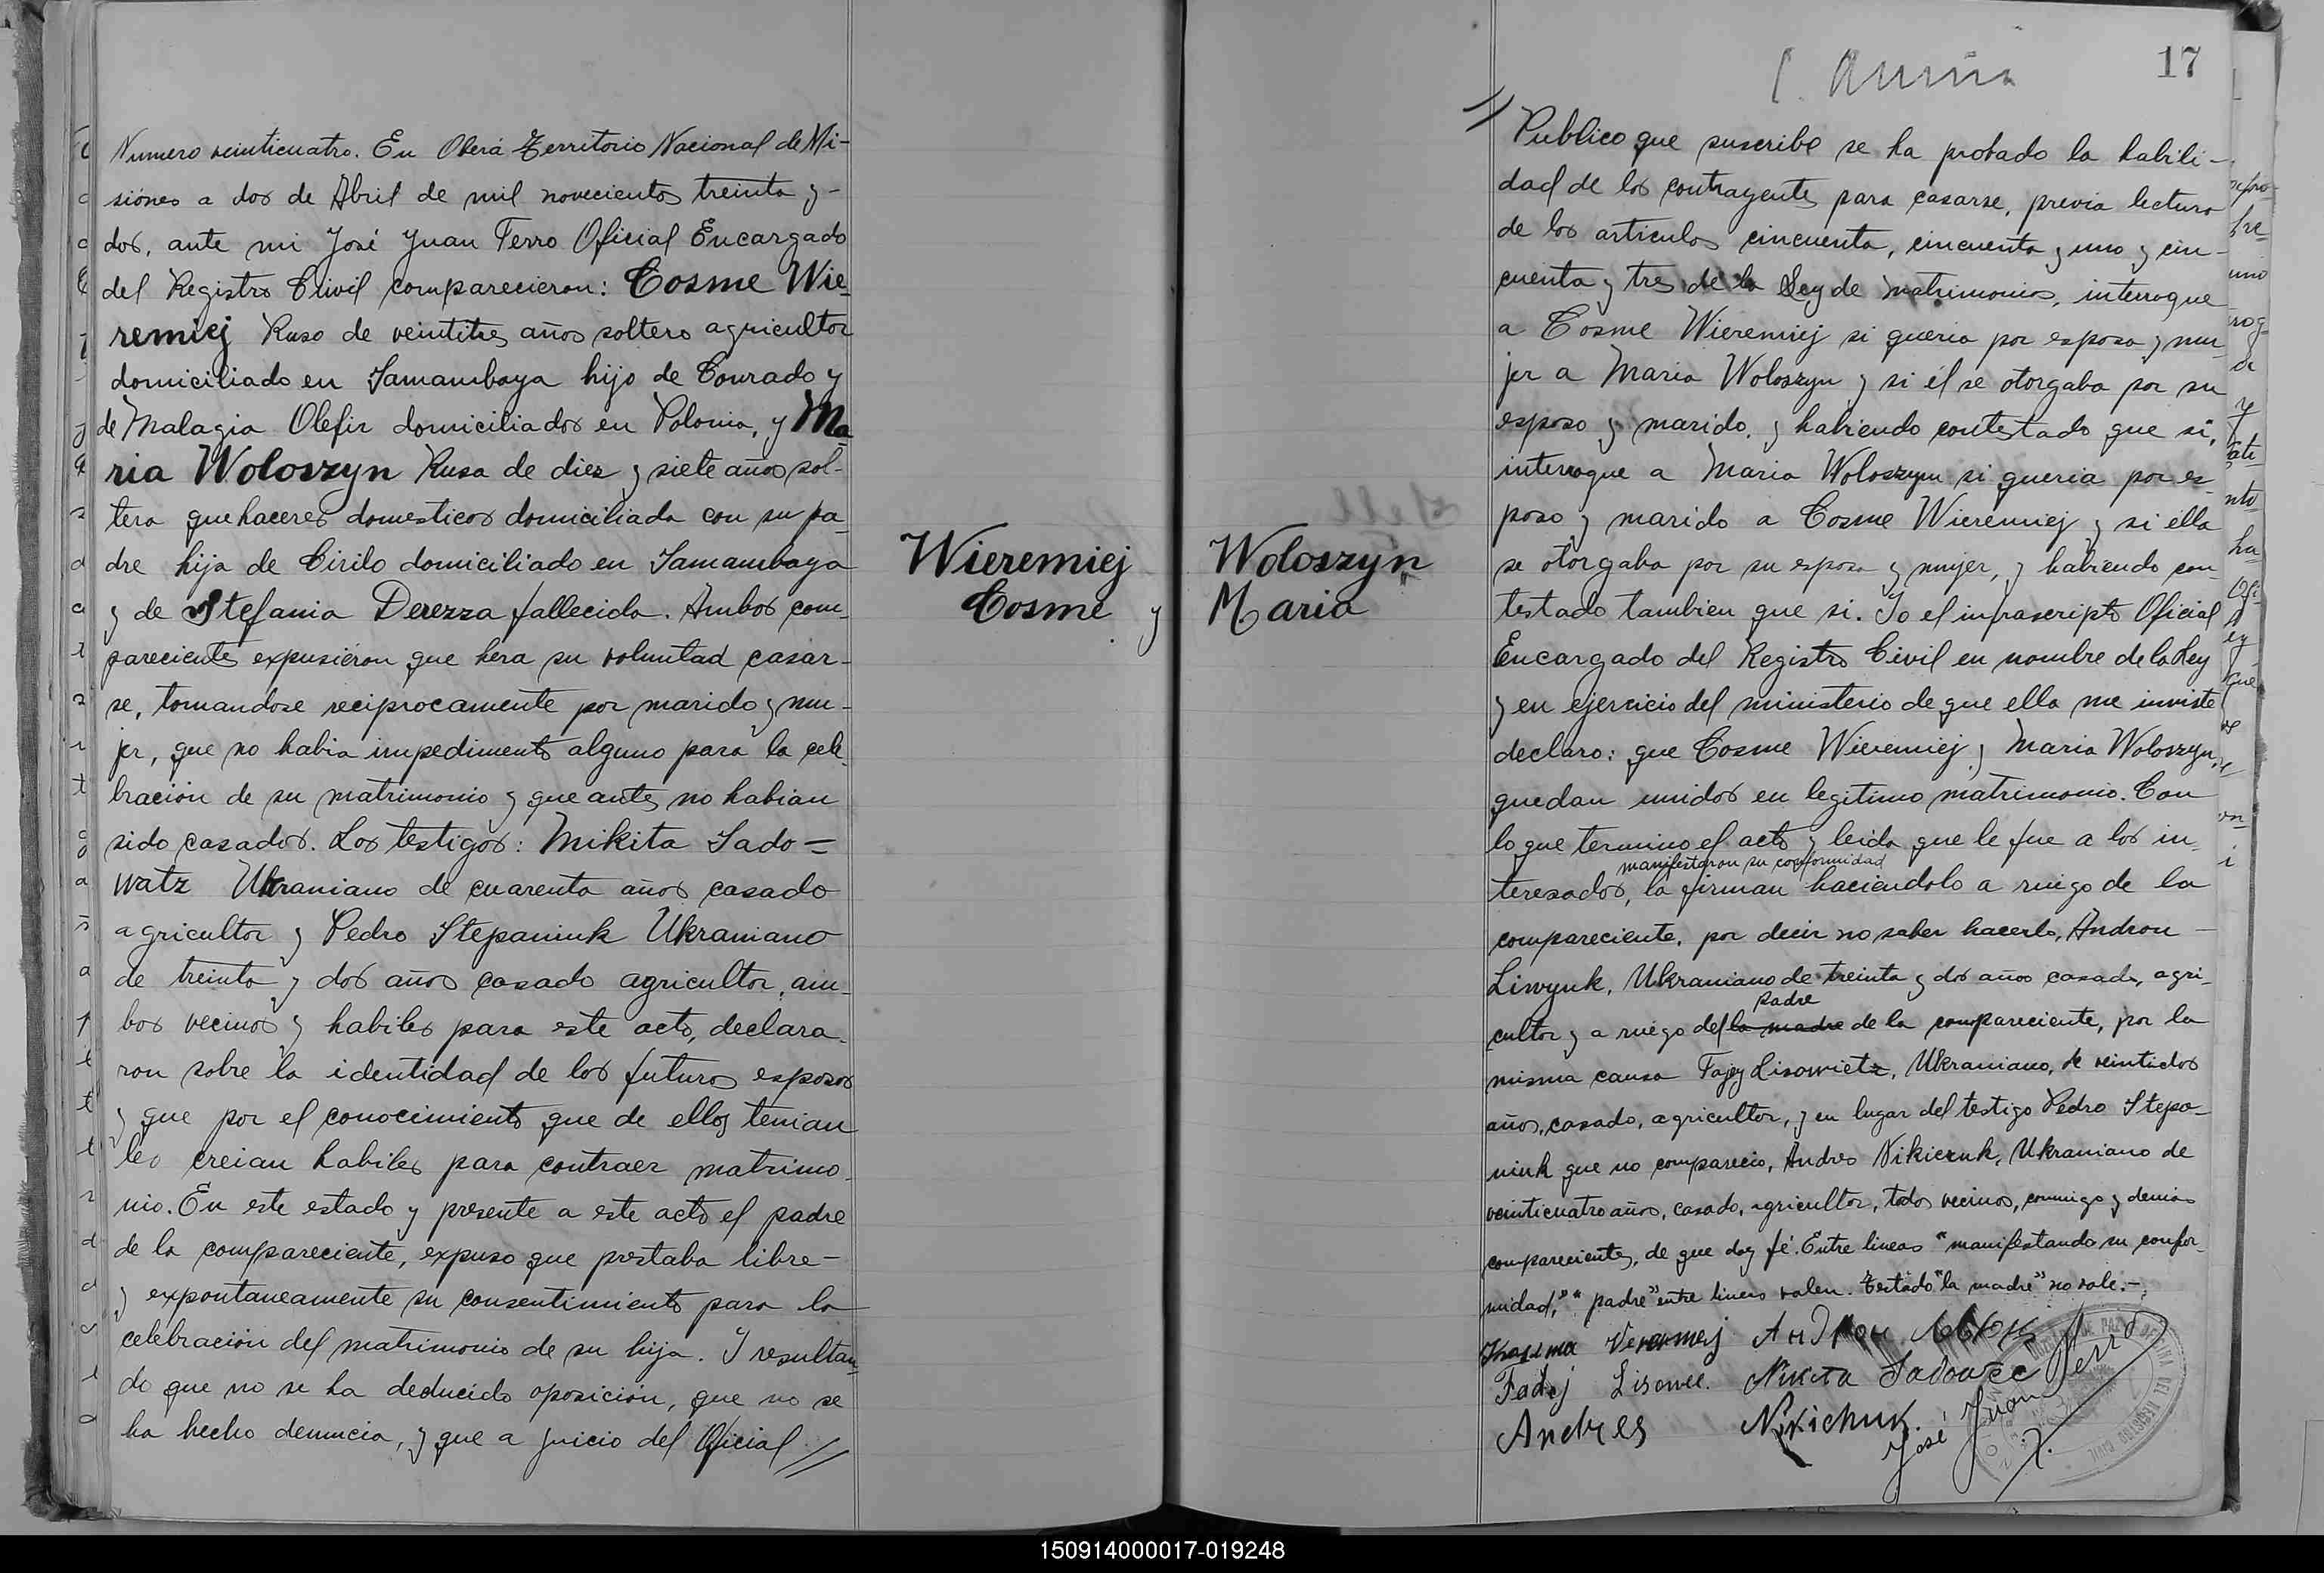 Numero veinticuatro. En Oberá Territorio Nacional de Mi-
siones a dos de Abril de mil novecientos treinta y -
dos, ante mi José Juan Ferro Oficial Encargado
del Registro Civil comparecieron: Cosme Wie-
remiej Ruso de veintitres años soltero agricultor
domiciliado en Samambaya hijo de Conrado y
de Malagia Olefir domiciliados en Polonia, y Ma-
ria Woloszyn Rusa de diez y siete años sol-
tera quehaceres domesticos domiciliada con su pa-
dre hija de Cirilo domiciliado en Samambaya
y de Stefania Derezza fallecida. Ambos com-
parecientes expusieron que hera su voluntad casar-
se, tomandose reciprocamente por marido y mu-
jer, que no habia impedimento alguno para la cele-
bración de su matrimonio y que antes no habian
sido casados. Los testigos: Mikita Sado=
watz Ukraniano de cuarenta años casado
agricultor y Pedro Stepaniuk Ukraniano
de treinta y dos años casado agricultor, am-
bos vecinos y habiles para este acto, declara-
ron sobre la identidad de los futuros esposos
y que por el conocimiento que de ellos tenian
les creian habiles para contraer matrimo-
nio. En este estado y presente a este acto el padre
de la compareciente, expuso que prestaba libre-
y expontaneamente su consentimiento para la
celebración del matrimonio de su hija. Y resultan-
do que no se ha deducido oposición, que no se
ha hecho denuncia, y que a juicio del Oficial //
Wieremiej
Cosme y
Woloszyn
Maria
17
// Publico que suscribe se ha probado la habili-
dad de los contrayentes para casarse, previa lectura
de los articulos cincuenta, cincuenta y uno y cin-
cuenta y tres de la Ley de matrimonios, interrogue
a Cosme Wieremiej si queria por esposa y mu-
jer a Maria Woloszyn y si él se otorgaba por su
esposo y marido, y habiendo contestado que si,
interrogue a Maria Woloszyn si queria por es-
poso y marido a Cosme Wieremiej y si ella
se otorgaba por su esposa y mujer, y habiendo con-
testado tambien que si. Yo el infrascripto Oficial
Encargado del Registro Civil en nombre de la Ley
y en ejercicio del ministerio de que ella me inviste
declaro: que Cosme Wieremiej y Maria Woloszyn,
quedan unidos en legitimo matrimonio. Con
lo que termino el acto y leida que le fue a los in-
manifestaron su conformidad
teresados, la firman haciendolo a ruego de la
compareciente, por decir no saber hacerlo, Andron -
Liwyuk, Ukraniano de treinta y dos años casado, agri-
padre
cultor y a ruego del la madre de la compareciente, por la
misma causa Fajey Lisowietz, Ukraniano, de veintidos
años, casado, agricultor, y en lugar del testigo Pedro Stepa-
niuk que no comparecio, Andres Nikiczuk, Ukraniano de
veinticuatro años, casado, agricultor, todos vecinos, conmigo y demás
comparecientes, de que doy fé. Entre lineas "manifestando su confor-
midad," "padre" entre lineas valen. Testado "la madre" no vale.-
Fadej
Nikita
Andres Nikichuk.
José Juan Ferro
150914000017-019248